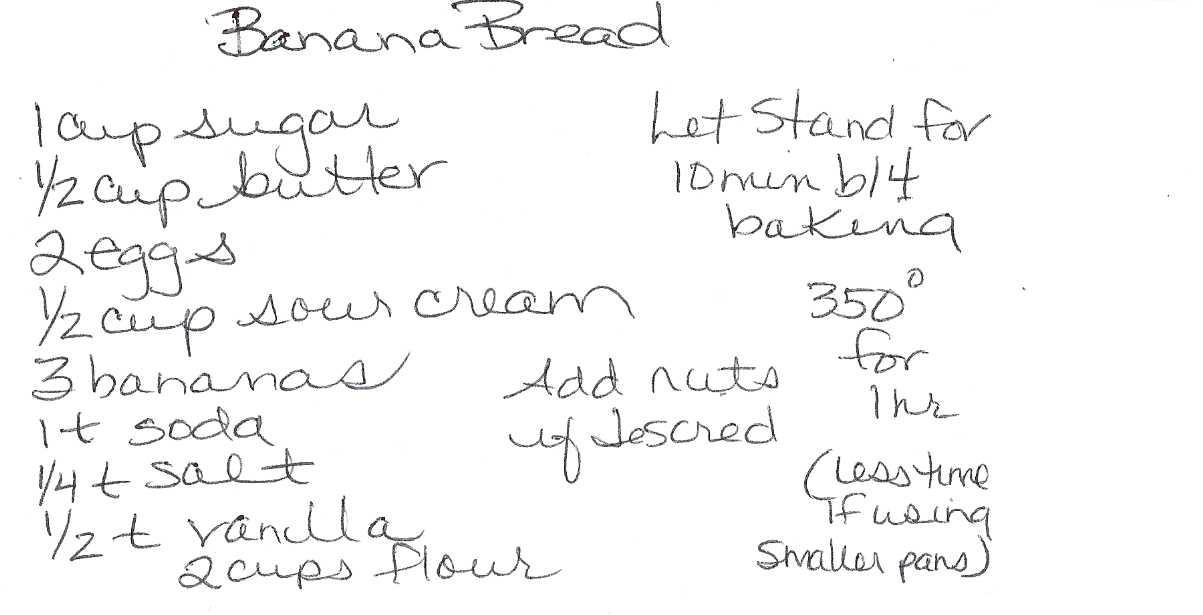 Banana Bread
1 cup sugar
1/2 cup butter
2 eggs
1/2 cup sour cream
3 bananas
1 t soda
1/4 t salt
1/2 t vanilla
2 cups flour
Add nuts
if desired
Let Stand for
10 min b/4
baking
350°
for
1 hr
(less time
If using
Smaller pans)